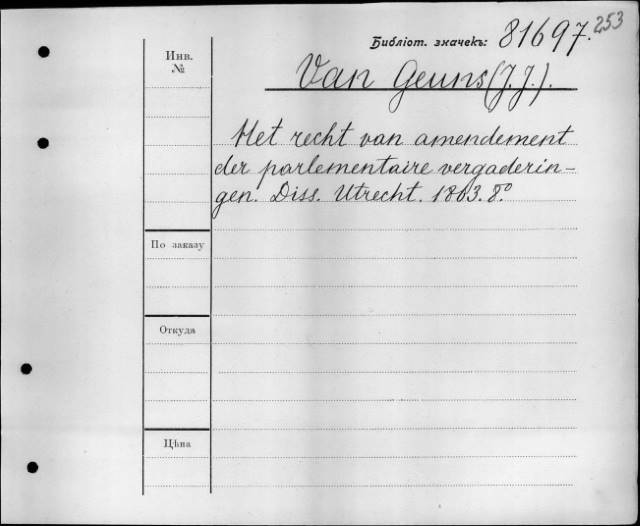 253
Библіот. значекъ: 81697.
Инв.
№
Van Geuns (J. J.).
Het recht van amendement
der parlementaire vergaderin-
gen. Diss. Utrecht. 1863. 8º
По заказу
Откуда
Цѣна